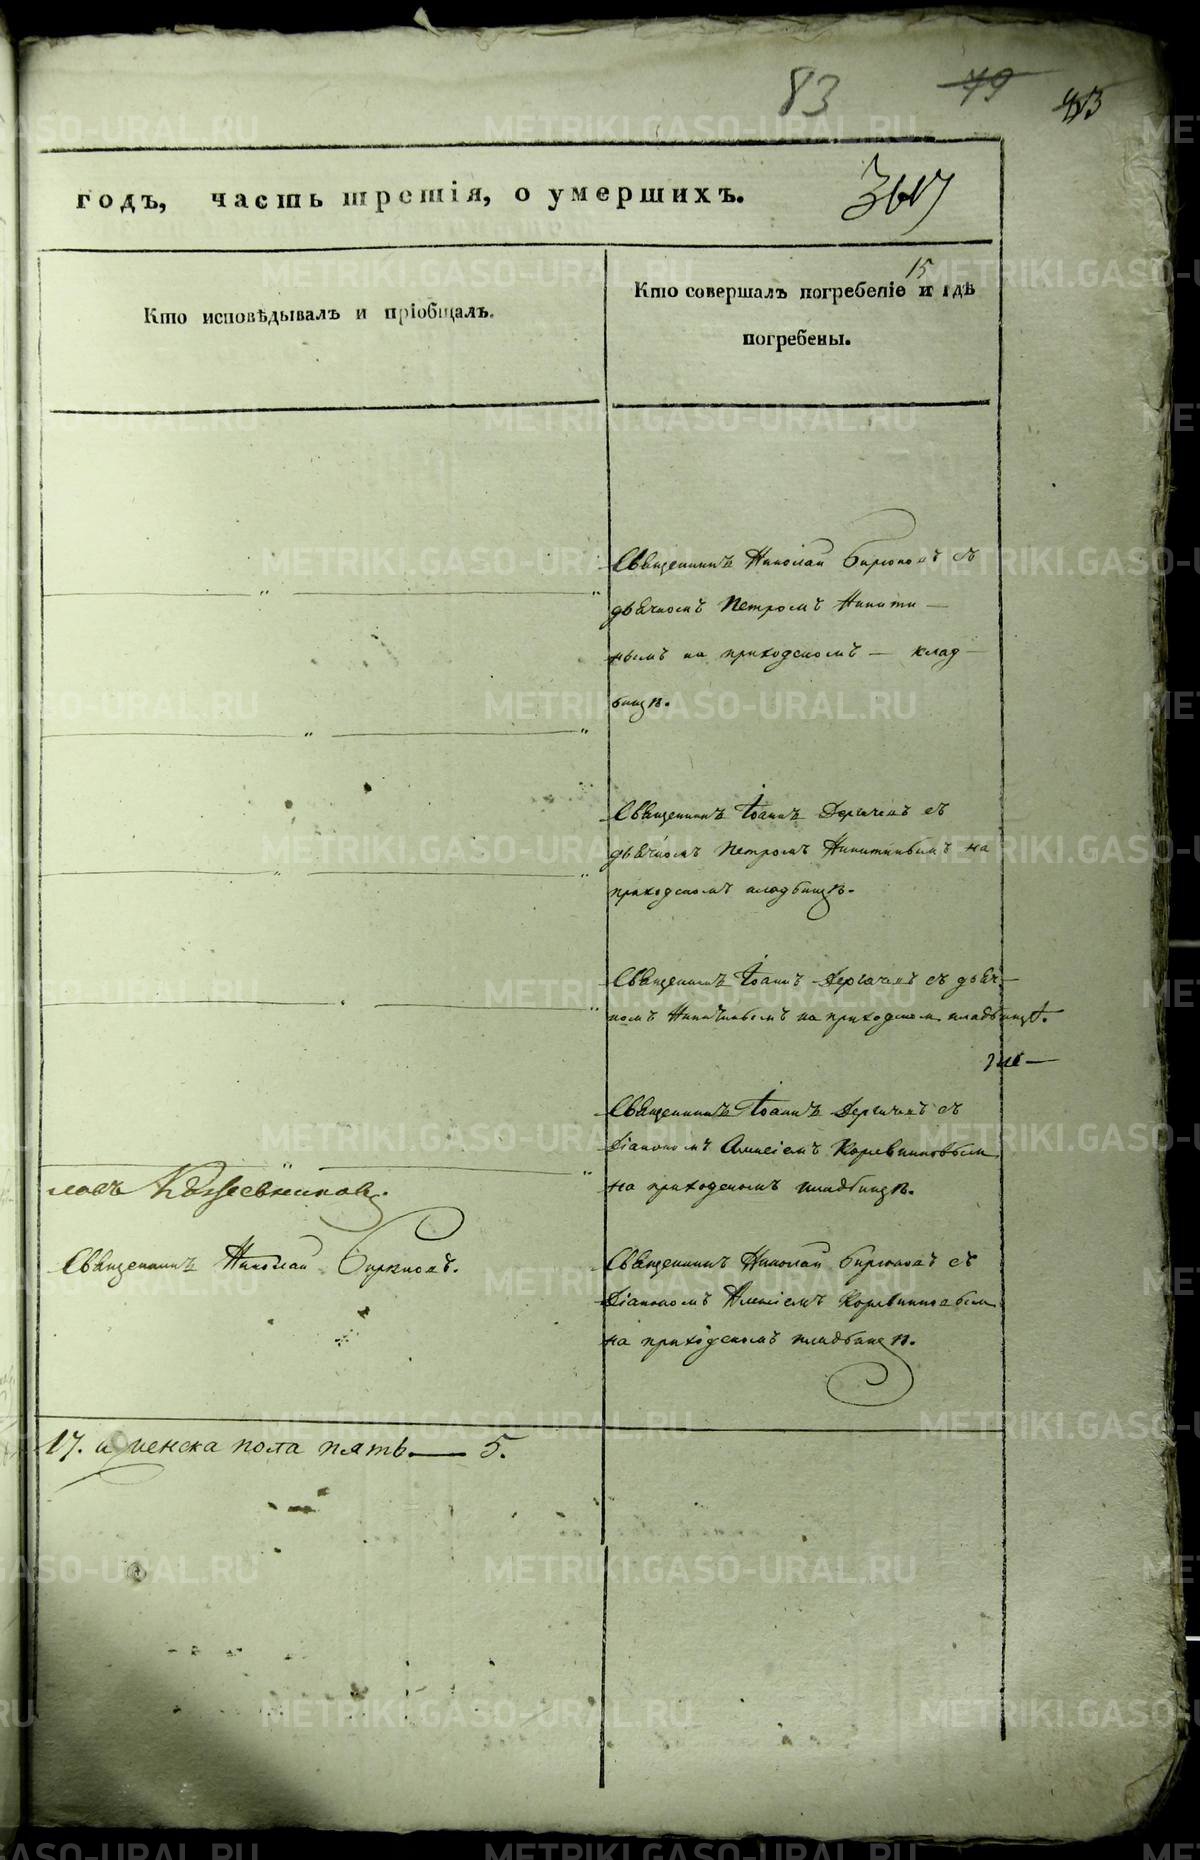 83 49
годъ, часть третія, о умершихъ.
15
Кто исповѣдывалъ и пріобщалъ.
Кто совершалъ погребеніе и гдѣ
погребены.
Священникъ Николай Бирюковъ съ
дьячкомъ Петромъ Никити—
нымъ на приходскомъ — клад—
бищѣ.
Священникъ Іоаннъ Дергачевъ съ
дьячкомъ Петромъ Никитинымъ на
приходскомъ кладбищѣ.
Священникъ Іоаннъ Дергачевъ съ дьяч—
комъ Никитинымъ на приходском кладбищѣ.
Священникъ Іоаннъ Дергачевъ съ
Діакономъ Алексіемъ Коровниковым
на приходскомъ кладбищѣ.
Священникъ Николай Бирюковъ.
Священникъ Николай Бирюковъ съ
Діакономъ Алексіемъ Коровниковым
на приходскомъ кладбищѣ.
17. и женска пола пять — 5.
METRIKI.GASO-URAL.RU